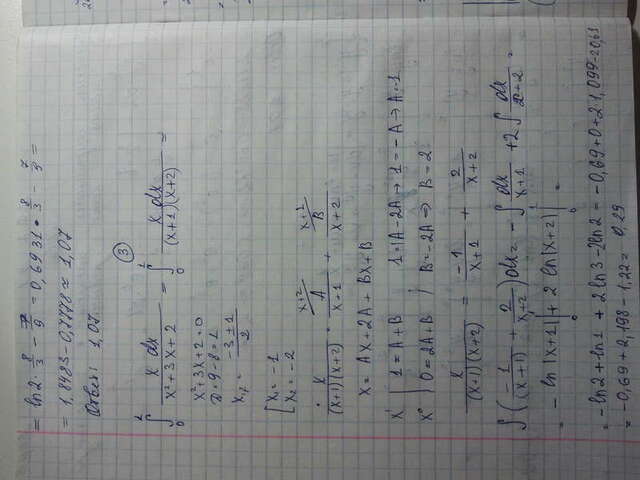 = ln2 · 8/3 − 7/9 = 0,6931 · 8/3 − 7/9 =
= 1,8483 − 0,7778 ≈ 1,07
Ответ: 1,07
③
∫₀¹ x dx / (x² + 3x + 2) = ∫₀¹ x dx / ((x+1)(x+2)) =
x² + 3x + 2 = 0
D = 9 − 8 = 1
x₁,₂ = (−3 ± 1) / 2
[ x₁ = −1
x₂ = −2
x / ((x+1)(x+2)) = A / (x+1) + B / (x+2)
x = Ax + 2A + Bx + B
x¹ | 1 = A + B 1 = A − 2A → 1 = −A → A = −1
x⁰ | 0 = 2A + B B = −2A ⇒ B = 2
x / ((x+1)(x+2)) = −1 / (x+1) + 2 / (x+2)
∫ (−1 / (x+1) + 2 / (x+2)) dx = − ∫ dx / (x+1) + 2 ∫ dx / (x+2) =
= − ln |x+1| |₀¹ + 2 ln |x+2| |₀¹
= − ln2 + ln1 + 2 ln3 − 2 ln2 = −0,69 + 0 + 2·1,099 − 2·0,61
= −0,69 + 2,198 − 1,22 = 0,29